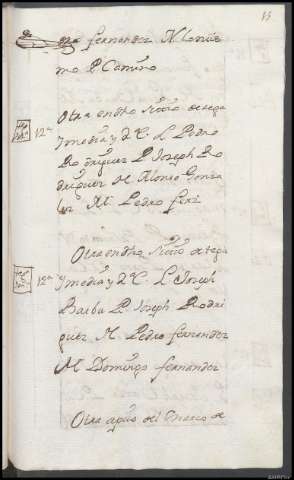 15
fernandez N Loren
mo P Camino
Otra en dho sitio de sega
y media y d C. L Pedro
Rodriguez P Joseph Ro
driguez M Alonso Gonza
lez M. Pedro ferz
12ª
Otra en dho sitio de sega
y media y d C. L Joseph
Barba P. Joseph Rodri
guez M. Pedro fernandez
M Domingo fernandez
12ª
Otra a do del Marco de